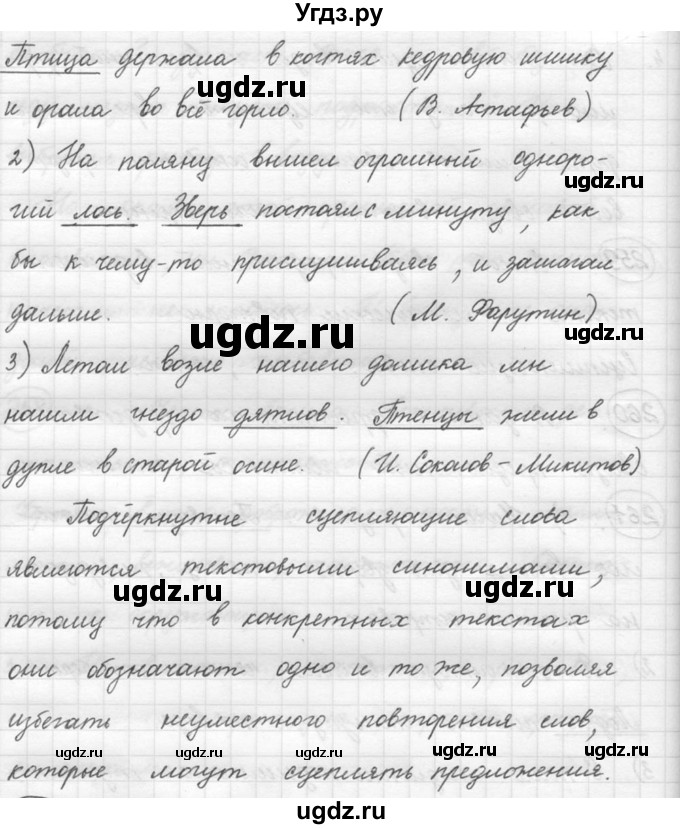 Угдз.ру
Птица держала в когтях кедровую шишку
ugdz.ru
и орала во всё горло. (В. Астафьев)
ugdz.ru
2) На поляну вышел огромный одноро-
ugdz.ru
гий лось. Зверь постоял с минуту, как
бы к чему-то прислушиваясь, и зашагал
ugdz.ru
дальше. (М. Фарутин)
ugdz.ru
ugdz.ru
3) Летом возле нашего домика мы
нашли гнездо дятлов. Птенцы жили в
ugdz.ru
дупле в старой осине. (И. Соколов-Микитов)
ugdz.ru
Подчёркнутые сцепляющие слова
являются текстовыми синонимами,
ugdz.ru ugdz.ru
потому что в конкретных текстах
они обозначают одно и то же, позволяя
избегать неуместного повторения слов,
ugdz.ru ugdz.ru ugdz.ru ugdz.ru ugdz.ru
которые могут сцеплять предложения.
ugdz.ru